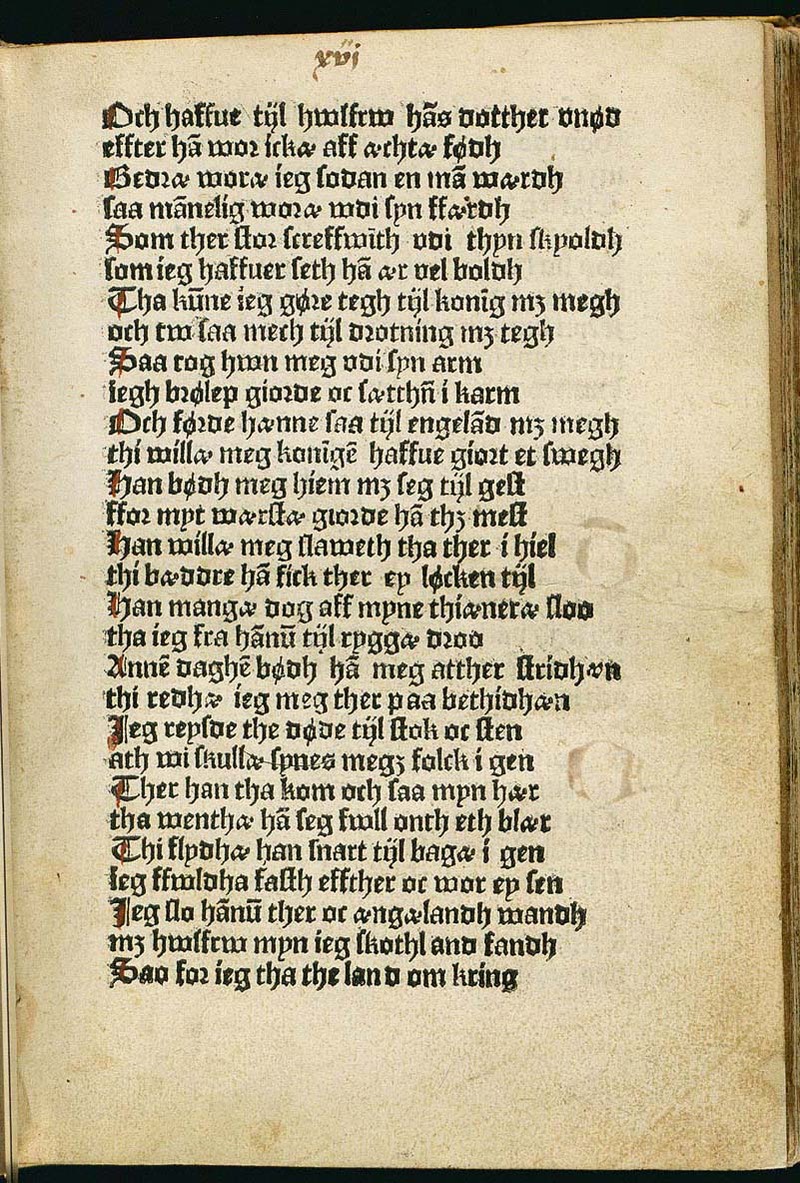 xvi
Och haffue tijl hwsfrw hās dotther vnød
effter hā wor ickæ aff æchtæ fødh
Bedræ woræ ieg sodan en mā wærdh
saa mānelig woræ wdi syn ffærdh
Som ther stor screffwīth vdi thyn skyoldh
som ieg haffuer seth hā ær vel boldh
Tha kūne ieg gøre tegh tijl konīg mꝫ megh
och tw saa mech tijl drotning mꝫ tegh
Saa tog hwn meg vdi syn arm
iegh brølep giorde oc sætthn̄ i karm
Och førde hænne saa tijl engelād mꝫ megh
thi willæ meg konīgē haffue giort et swegh
Han bødh meg hiem mꝫ seg tijl gest
ffor myt wærstæ giorde hā thꝫ mest
Han willæ meg slaweth tha ther i hiel
thi bæddre hā fick ther ey løcken tijl
Han mangæ dog aff myne thiæneræ sloo
tha ieg fra hānū tijl ryggæ droo
Annē daghē bødh hā meg atther stridhæn
thi redhæ ieg meg ther paa bethidhæn
Jeg reysde the døde tijl stok oc sten
ath wi skullæ synes megꝫ folck i gen
Ther han tha kom och saa myn hær
tha wenthæ hā seg fwll onth eth blær
Thi flydhæ han snart tijl bagæ i gen
ieg ffwldha fasth effther oc wor ey sen
Jeg slo hānū ther oc ængælandh wandh
mꝫ hwsfrw myn ieg skothland fandh
Sao for ieg tha the land om kring